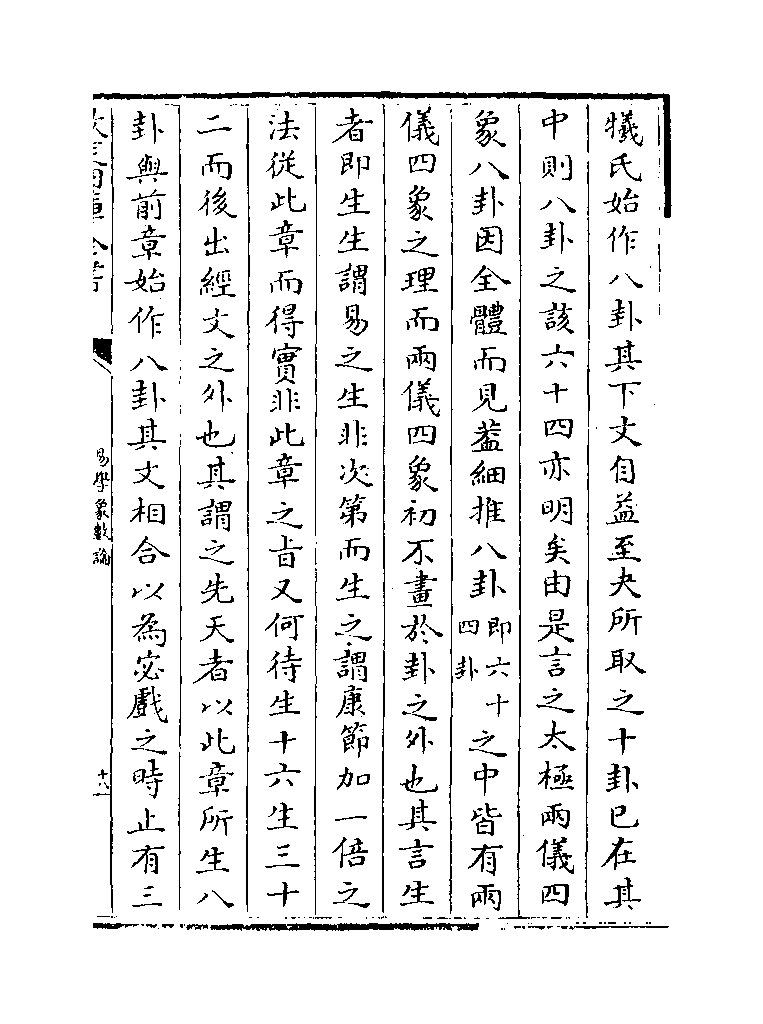 犧氏始作八卦其下文自益至夬所取之十卦已在其
中則八卦之該六十四亦明矣由是言之太極兩儀四
象八卦因全體而見葢細推八卦即六十四卦之中皆有兩
儀四象之理而兩儀四象初不畫於卦之外也其言生
者即生生謂易之生非次第而生之謂康節加一倍之
法從此章而得實非此章之㫖又何待生十六生三十
二而後出經文之外也其謂之先天者以此章所生八
卦與前章始作八卦其文相合以為宓戲之時止有三
易學象數論
十八